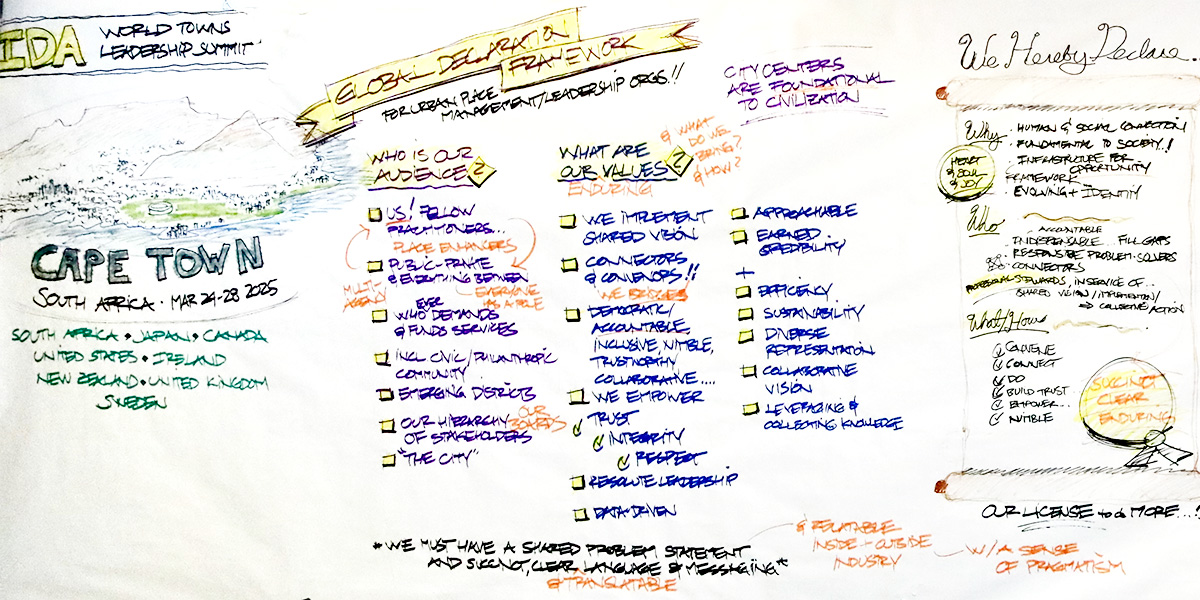 IDA
WORLD TOWNS
LEADERSHIP SUMMIT
CAPE TOWN
SOUTH AFRICA · MAR 24-28 2025
SOUTH AFRICA • JAPAN • CANADA
UNITED STATES • IRELAND
NEW ZEALAND • UNITED KINGDOM
SWEDEN
GLOBAL DECLARATION
FRAMEWORK
FOR URBAN PLACE
MANAGEMENT/LEADERSHIP ORGS!!
CITY CENTERS
ARE FOUNDATIONAL
TO CIVILIZATION
WHO IS OUR
AUDIENCE ?
US! FELLOW
PRACTITIONERS...
PLACE ENHANCERS
PUBLIC-PRIVATE
& EVERYTHING BETWEEN
MULTI-
AGENCY
EVERYONE
HAS A ROLE
EVER
WHO DEMANDS
& FUNDS SERVICES
INCL CIVIC/PHILANTHROPIC
COMMUNITY
EMERGING DISTRICTS
OUR HIERARCHY
OF STAKEHOLDERS
OUR
BOARDS
"THE CITY"
WHAT ARE
OUR VALUES ?
ENDURING
& WHAT
DO WE
BRING?
& HOW?
WE IMPLEMENT
SHARED VISION
CONNECTORS
& CONVENORS!!
WE BRIDGES
DEMOCRATIC/
ACCOUNTABLE,
INCLUSIVE, NIMBLE,
TRUSTWORTHY
COLLABORATIVE....
WE EMPOWER
TRUST
INTEGRITY
RESPECT
RESOLUTE LEADERSHIP
DATA-DRIVEN
APPROACHABLE
EARNED
CREDIBILITY
+
EFFICENCY
SUSTAINABILITY
DIVERSE
REPRESENTATION
COLLABORATIVE
VISION
LEVERAGING &
COLLECTING KNOWLEDGE
*WE MUST HAVE A SHARED PROBLEM STATEMENT
AND SUCCINCT, CLEAR LANGUAGE & MESSAGING*
& TRANSLATABLE
& RELATABLE
INSIDE + OUTSIDE
INDUSTRY
W/A SENSE
OF PRAGMATISM
We Hereby Declare...
Why
· HUMAN & SOCIAL CONNECTION
· FUNDAMENTAL TO SOCIETY!
· INFRASTRUCTURE FOR
OPPORTUNITY
FRAMEWORK
· EVOLVING + IDENTITY
HEART
& SOUL
& JOY
Who
ACCOUNTABLE
· INDISPENSABLE... FILL GAPS
· RESPONSIVE PROBLEM-SOLVERS
· CONNECTORS
PROFESSIONAL STEWARDS, IN SERVICE OF...
SHARED VISION/IMPLEMENTATION/
⇒ COLLECTIVE ACTION
What/How
CONVENE
CONNECT
DO
BUILD TRUST
EMPOWER...
NIMBLE
SUCCINCT
CLEAR
ENDURING
OUR LICENSE to do MORE...!